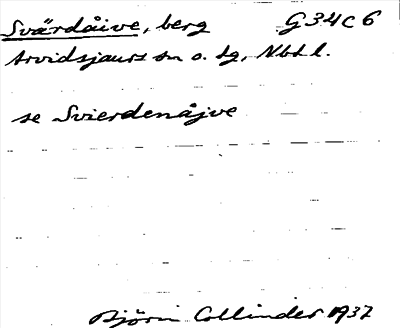 Svärdåive, berg G34c6
Arvidsjaurs sn o. tg, Nbt l.
se Svierdenåjve
Björn Collinder 1937